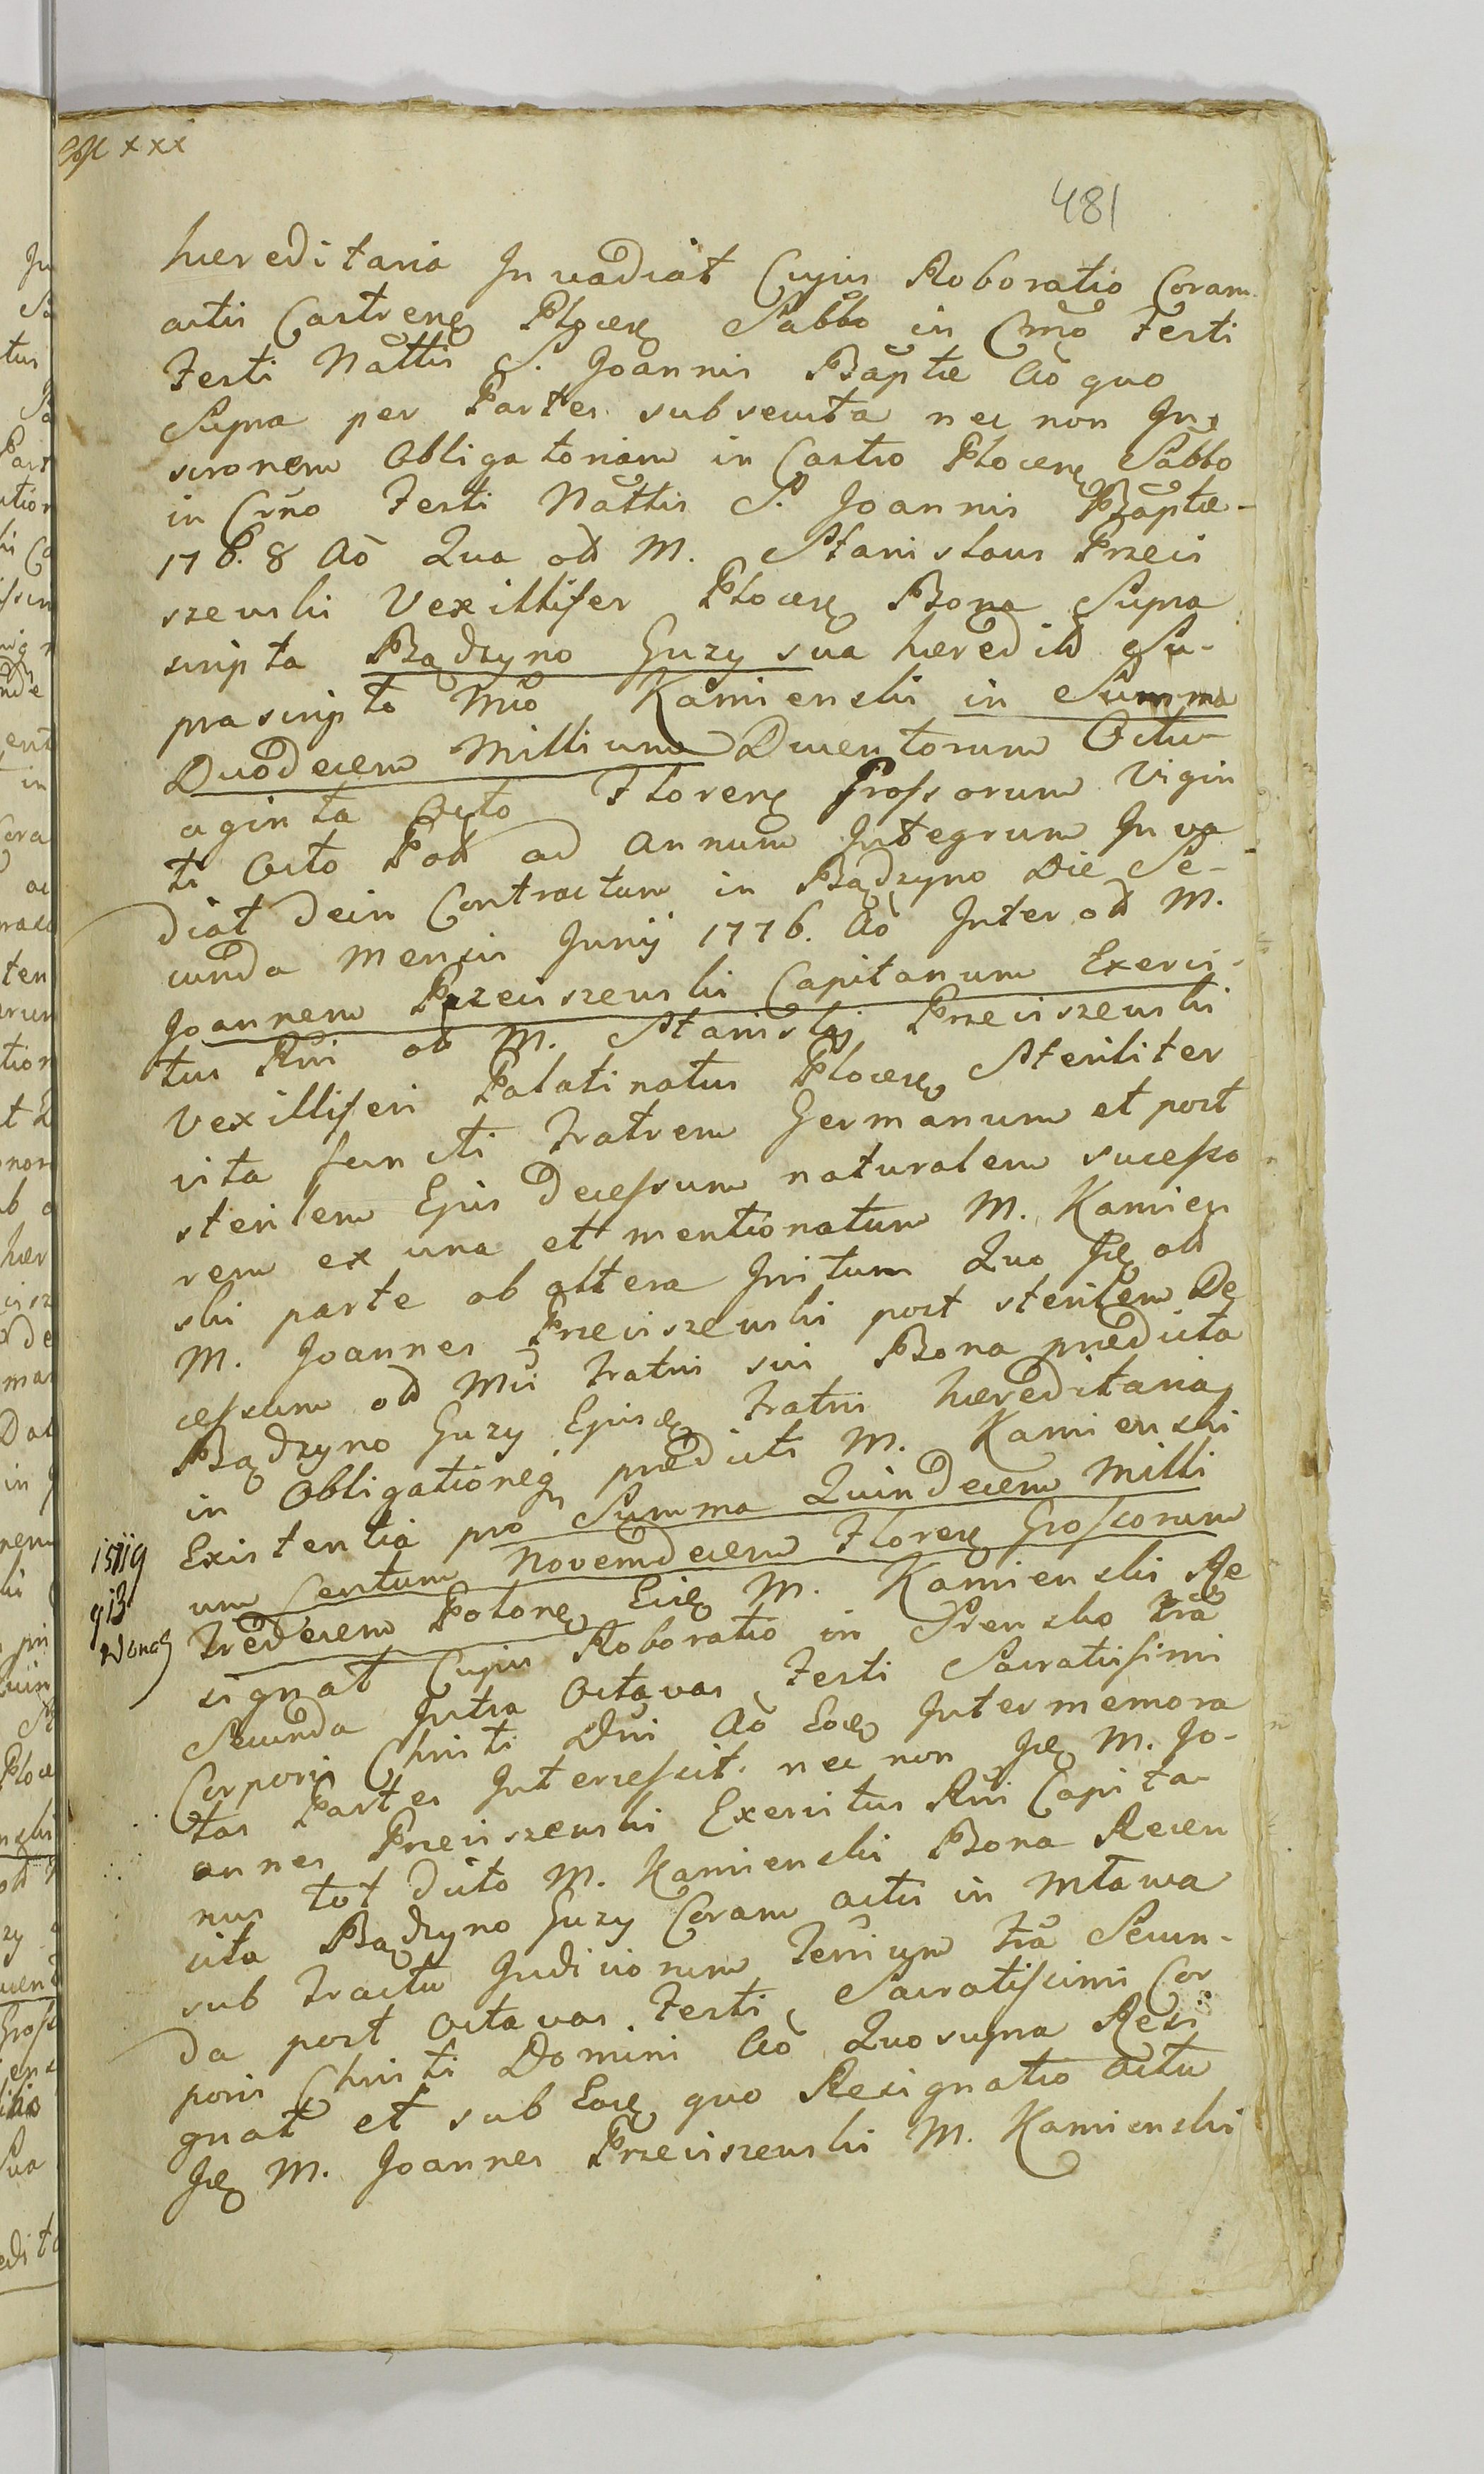 xxx
481
hæreditaria Invadiat Cujus Roboratio Coram
actis Castren Plocen Sabbo in Crño Festi
Festi Nattis S. Joannis Bapta Aō quo
Supra per Partes subsecuta nec non In
scionem Obligatoriam in Castro Plocen Sabbo
in Crño Festi Nattis S. Joannis Baptæ-
176.8 Aō Qua od M. Stanislaus Przeci
szewski Vexillifer Plocen Bona Supra
scripta Bądzyno Guzy sua hæredia Su-
prascripto Mfco Kamienski in Summa
Duodecem Millium Ducentorum Octu
aginta Octo Floren Grossorum Vigin
ti Octo Pol ad Annum Integrum Inva
diat dein Contractum in Bądzyno Die Se-
cunda Mensis Junij 1776. Aō Inter od M.
Joannem Przeciszewski Capitanum Exerci-
tus Rni od M. Stanislaj Przeciszewski
Vexilliferi Palatinatus Plocen Steriliter
vita functi Fratrem Germanum et post
sterilem Ejus Decessum naturalem sucesso
rem ex una et mentionatum M. Kamien
ski parte ab altera Initum Quo Ide od
M. Joannes Przeciszewski post sterilem De
cessum od Mci Fratris sui Bona prædicta
Bądzyno Guzy Ejusde Fratris hæreditaria
in Obligatione prædicti M. Kamienski
Existentia pro Summa Quindecem Milli
um Centum Novemdecem Floren Grossorum
Tredecem Polone Eide M. Kamienski Re
15119
g 13
signat Cujus Roboratio in Siensko Fra
Secunda Intra Octavas Festi Sacratissimi
Corporis Christi Dñi Aō Eode Inter memora
tas Partes Intercessit. nec non Ide M. Jo-
annes Przeciszewski Exercitus Rni Capita
nus tot dicto M. Kamienski Bona Recen
sita Bądzyno Guzy Coram actis in Mława
sub tractu Judiciorum Terrium Fra Secun-
da post Octavas Festi Sacratissimi Cor
poris Christi Domini Aō Quo supra Resi
gnat et sub Eode quo Resignatio actu
Ide M. Joannes Przeciszewski M. Kamienski